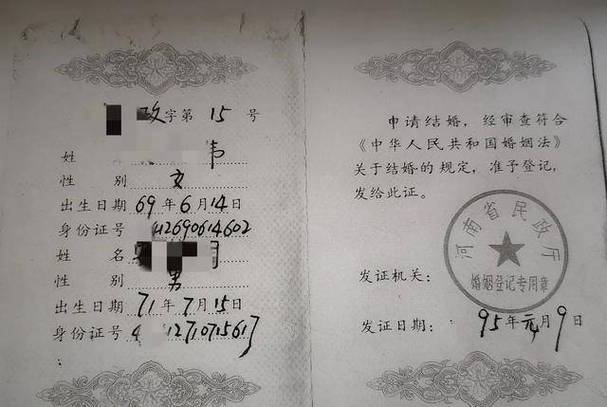 政字第 15 号
姓 韦
性 别 女
出生日期 69 年 6 月 14 日
身份证号 12690614602
姓 名
性 别 男
出生日期 71 年 7 月 15 日
身份证号 4 12710715617
申请结婚，经审查符合
《中华人民共和国婚姻法》
关于结婚的规定，准予登记，
发给此证。
河南省民政厅
婚姻登记专用章
发证机关：
发证日期： 95 年 元 月 9 日